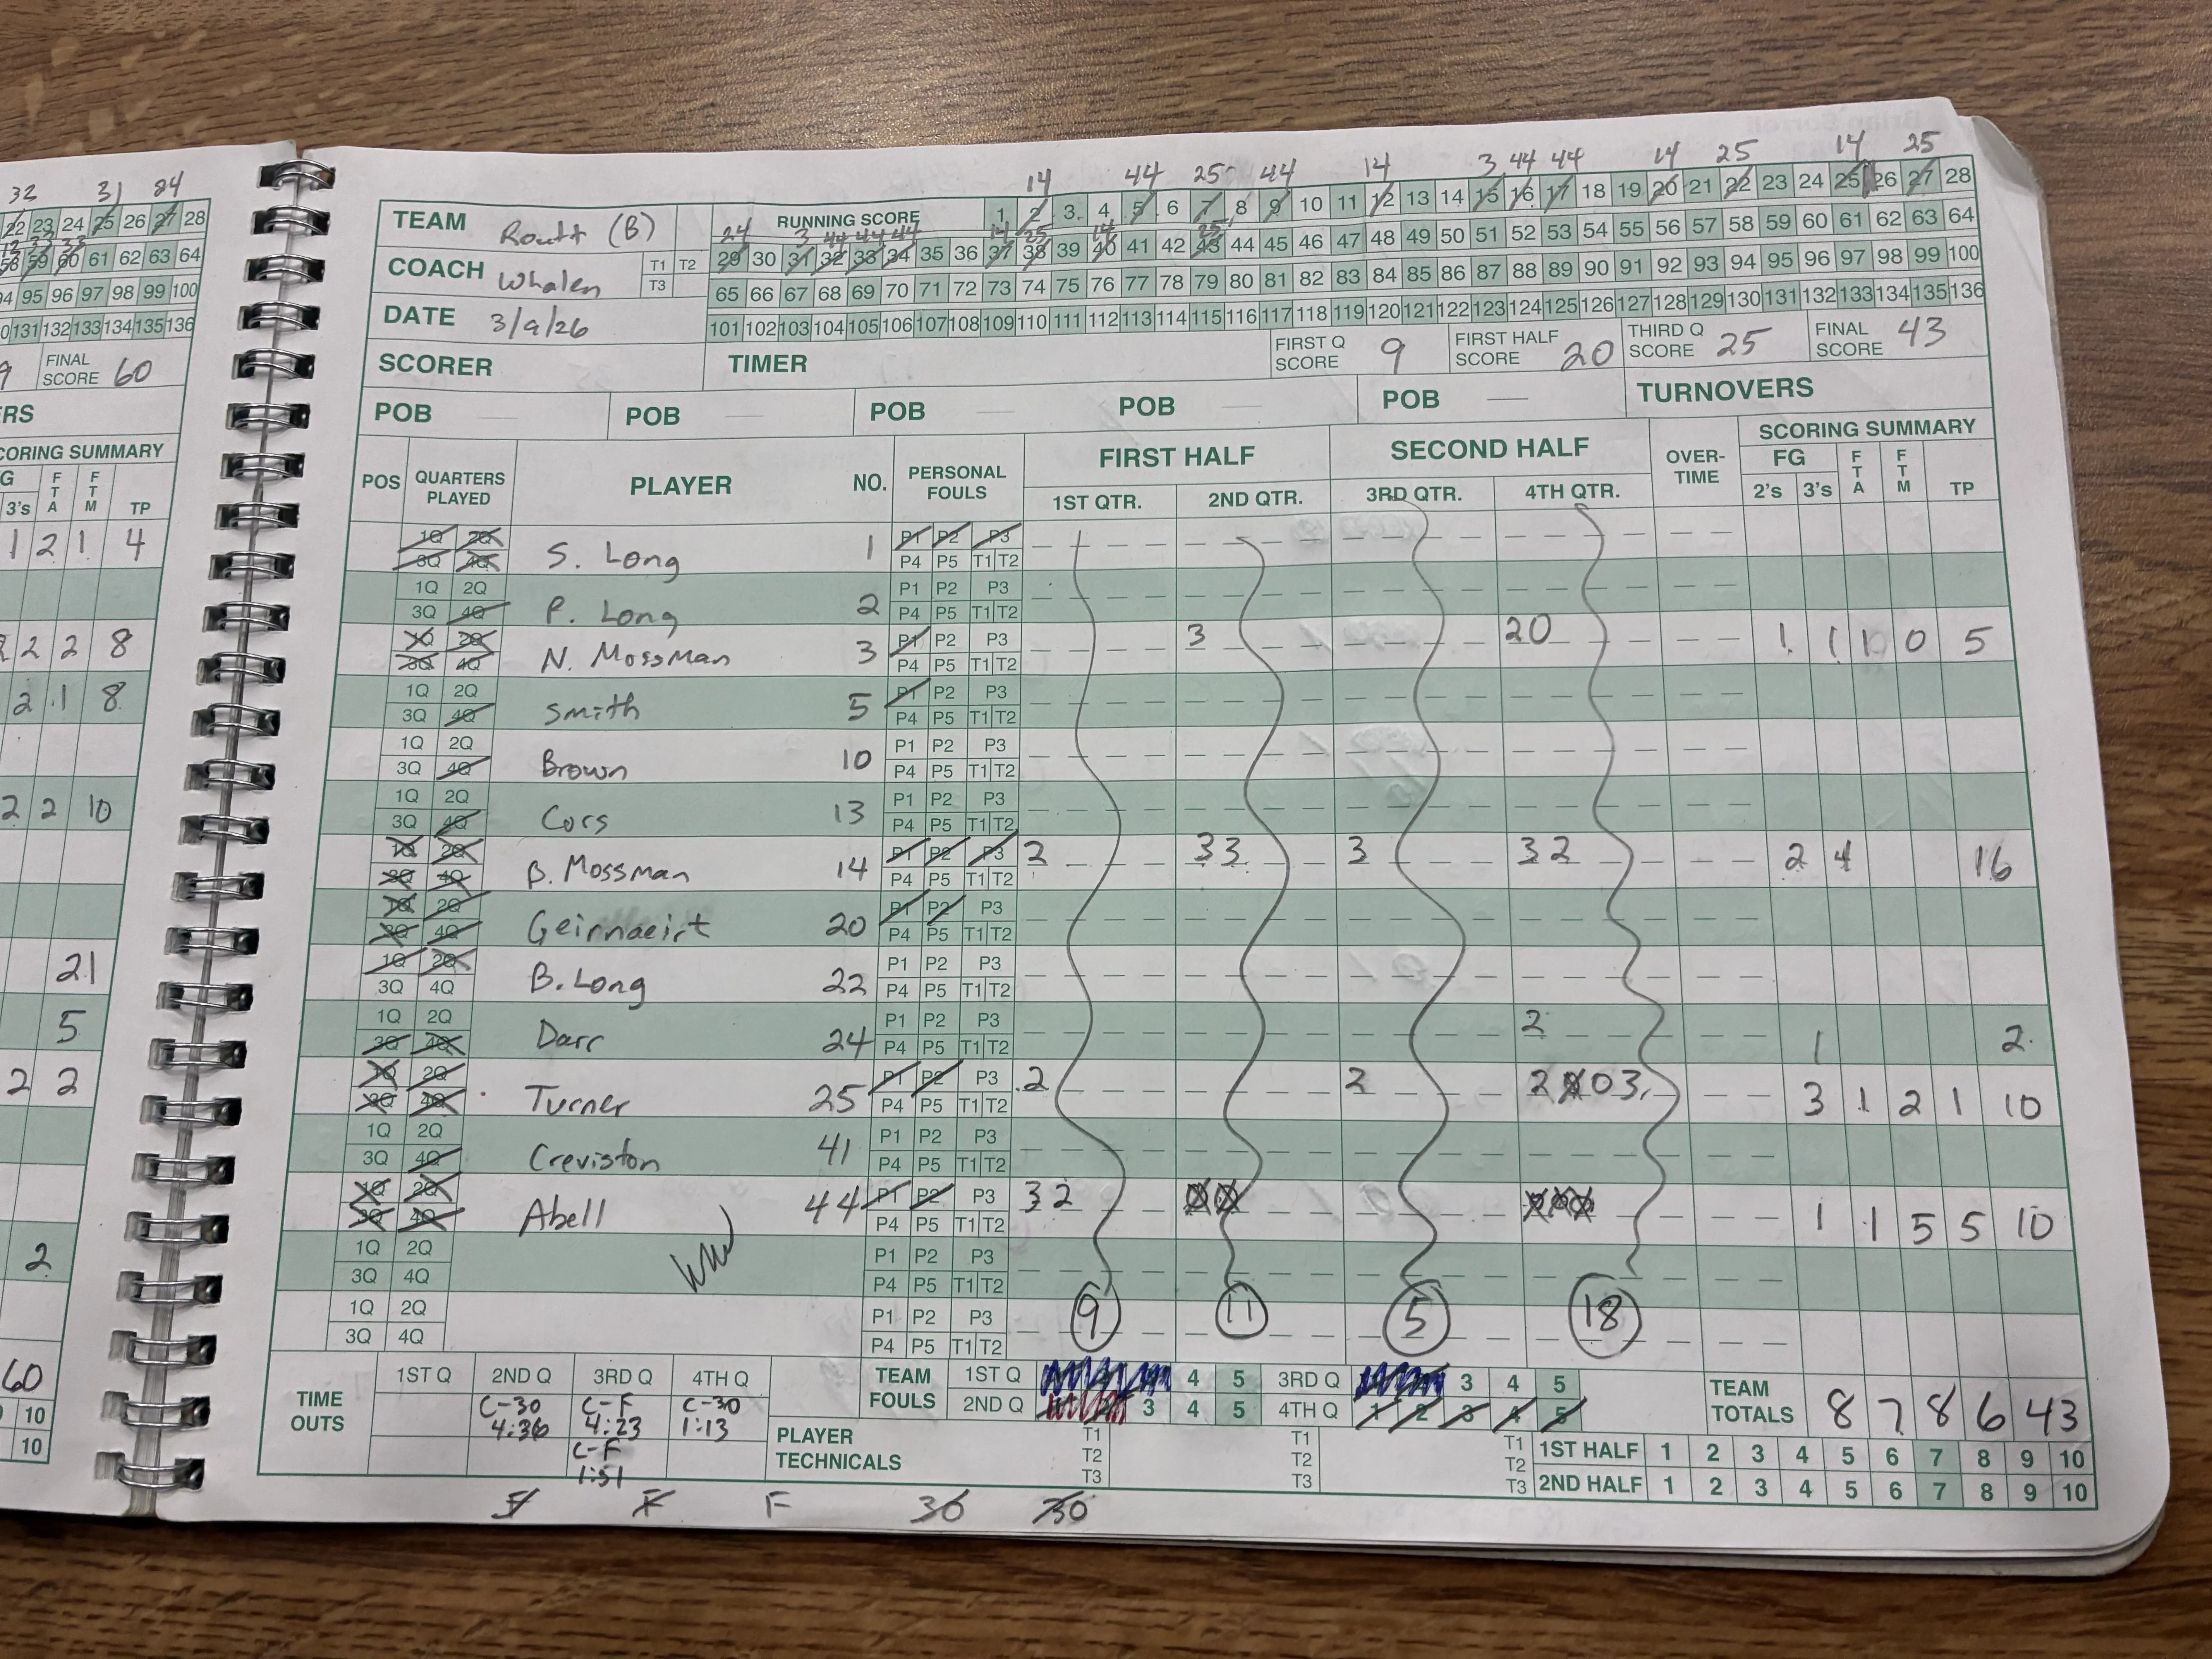 32 31 24
22 23 24 25 26 27 28
58 59 60 61 62 63 64
94 95 96 97 98 99 100
131 132 133 134 135 136
FINAL SCORE 60
SCORING SUMMARY
3's FTA FTM TP
1 2 1 4
2 2 2 8
2 1 8
2 2 10
21
5
2 2
2
60
10
10
14 44 25 44 14 3 44 44 14 25 14 25
TEAM Routt (B)
RUNNING SCORE 1 2 3 4 5 6 7 8 9 10 11 12 13 14 15 16 17 18 19 20 21 22 23 24 25 26 27 28
24 3 44 44 44 14 25 14 25
29 30 31 32 33 34 35 36 37 38 39 40 41 42 43 44 45 46 47 48 49 50 51 52 53 54 55 56 57 58 59 60 61 62 63 64
COACH Whalen T1 T2 T3
65 66 67 68 69 70 71 72 73 74 75 76 77 78 79 80 81 82 83 84 85 86 87 88 89 90 91 92 93 94 95 96 97 98 99 100
DATE 3/9/26
101 102 103 104 105 106 107 108 109 110 111 112 113 114 115 116 117 118 119 120 121 122 123 124 125 126 127 128 129 130 131 132 133 134 135 136
SCORER TIMER FIRST Q SCORE 9 FIRST HALF SCORE 20 THIRD Q SCORE 25 FINAL SCORE 43
POB POB POB POB POB TURNOVERS
POS QUARTERS PLAYED PLAYER NO. PERSONAL FOULS FIRST HALF SECOND HALF OVER-TIME SCORING SUMMARY
1ST QTR. 2ND QTR. 3RD QTR. 4TH QTR. FG 2's 3's FTA FTM TP
1Q 2Q P1 P2 P3
3Q 4Q S. Long 1 P4 P5 T1 T2
1Q 2Q P1 P2 P3
3Q 4Q P. Long 2 P4 P5 T1 T2
1Q 2Q P1 P2 P3 3 20 1 1 1 0 5
3Q 4Q N. Mossman 3 P4 P5 T1 T2
1Q 2Q P1 P2 P3
3Q 4Q Smith 5 P4 P5 T1 T2
1Q 2Q P1 P2 P3
3Q 4Q Brown 10 P4 P5 T1 T2
1Q 2Q P1 P2 P3
3Q 4Q Cors 13 P4 P5 T1 T2
1Q 2Q P1 P2 P3 2 33 3 32 2 4 16
3Q 4Q B. Mossman 14 P4 P5 T1 T2
1Q 2Q P1 P2 P3
3Q 4Q Geirnaeirt 20 P4 P5 T1 T2
1Q 2Q P1 P2 P3
3Q 4Q B. Long 22 P4 P5 T1 T2
1Q 2Q P1 P2 P3 2 1 2
3Q 4Q Darr 24 P4 P5 T1 T2
1Q 2Q P1 P2 P3 2 2 2 0 3 3 1 2 1 10
3Q 4Q Turner 25 P4 P5 T1 T2
1Q 2Q P1 P2 P3
3Q 4Q Creviston 41 P4 P5 T1 T2
1Q 2Q P1 P2 P3 32 1 1 5 5 10
3Q 4Q Abell 44 P4 P5 T1 T2
1Q 2Q P1 P2 P3
3Q 4Q P4 P5 T1 T2
1Q 2Q P1 P2 P3 9 11 5 18
3Q 4Q P4 P5 T1 T2
TIME OUTS 1ST Q 2ND Q 3RD Q 4TH Q
C-30 4:36 C-F 4:23 C-30 1:13
C-F 1:51
TEAM FOULS 1ST Q 4 5 3RD Q 3 4 5
2ND Q 1 2 3 4 5 4TH Q 1 2 3 4 5
TEAM TOTALS 8 7 8 6 43
PLAYER TECHNICALS T1 T2 T3 T1 T2 T3 T1 T2 T3
1ST HALF 1 2 3 4 5 6 7 8 9 10
2ND HALF 1 2 3 4 5 6 7 8 9 10
F F F 30 30